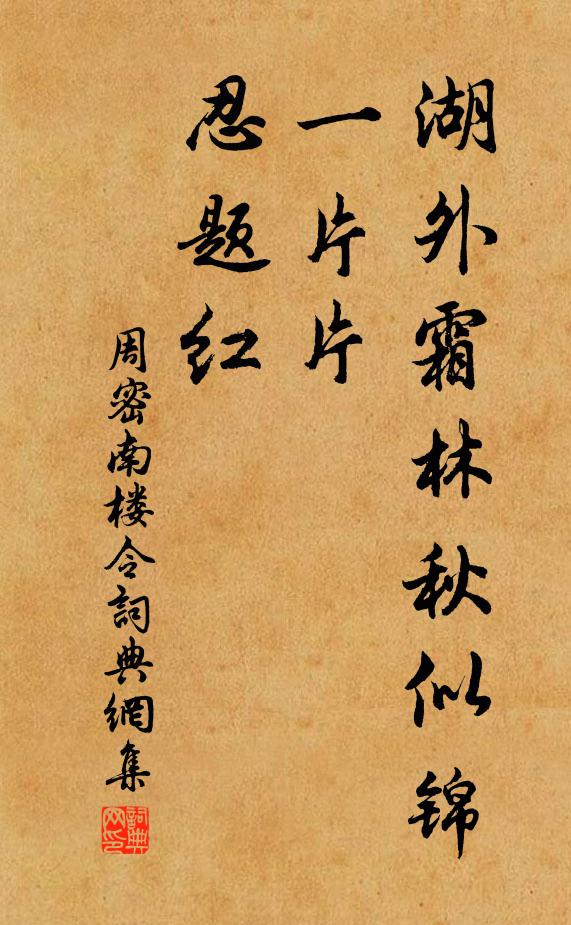 湖外霜林秋似锦
一片片
忍题红
周密南楼令詞典網集
詞典网印